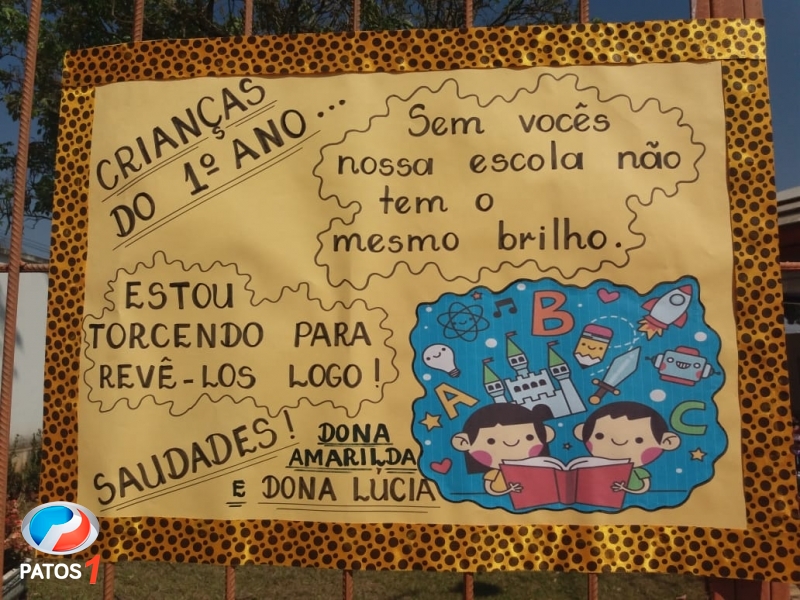 CRIANÇAS
DO 1º ANO...
Sem vocês
nossa escola não
tem o
mesmo brilho.
ESTOU
TORCENDO PARA
REVÊ-LOS LOGO!
SAUDADES!
DONA
AMARILDA
E DONA LÚCIA
A
B
C
PATOS 1